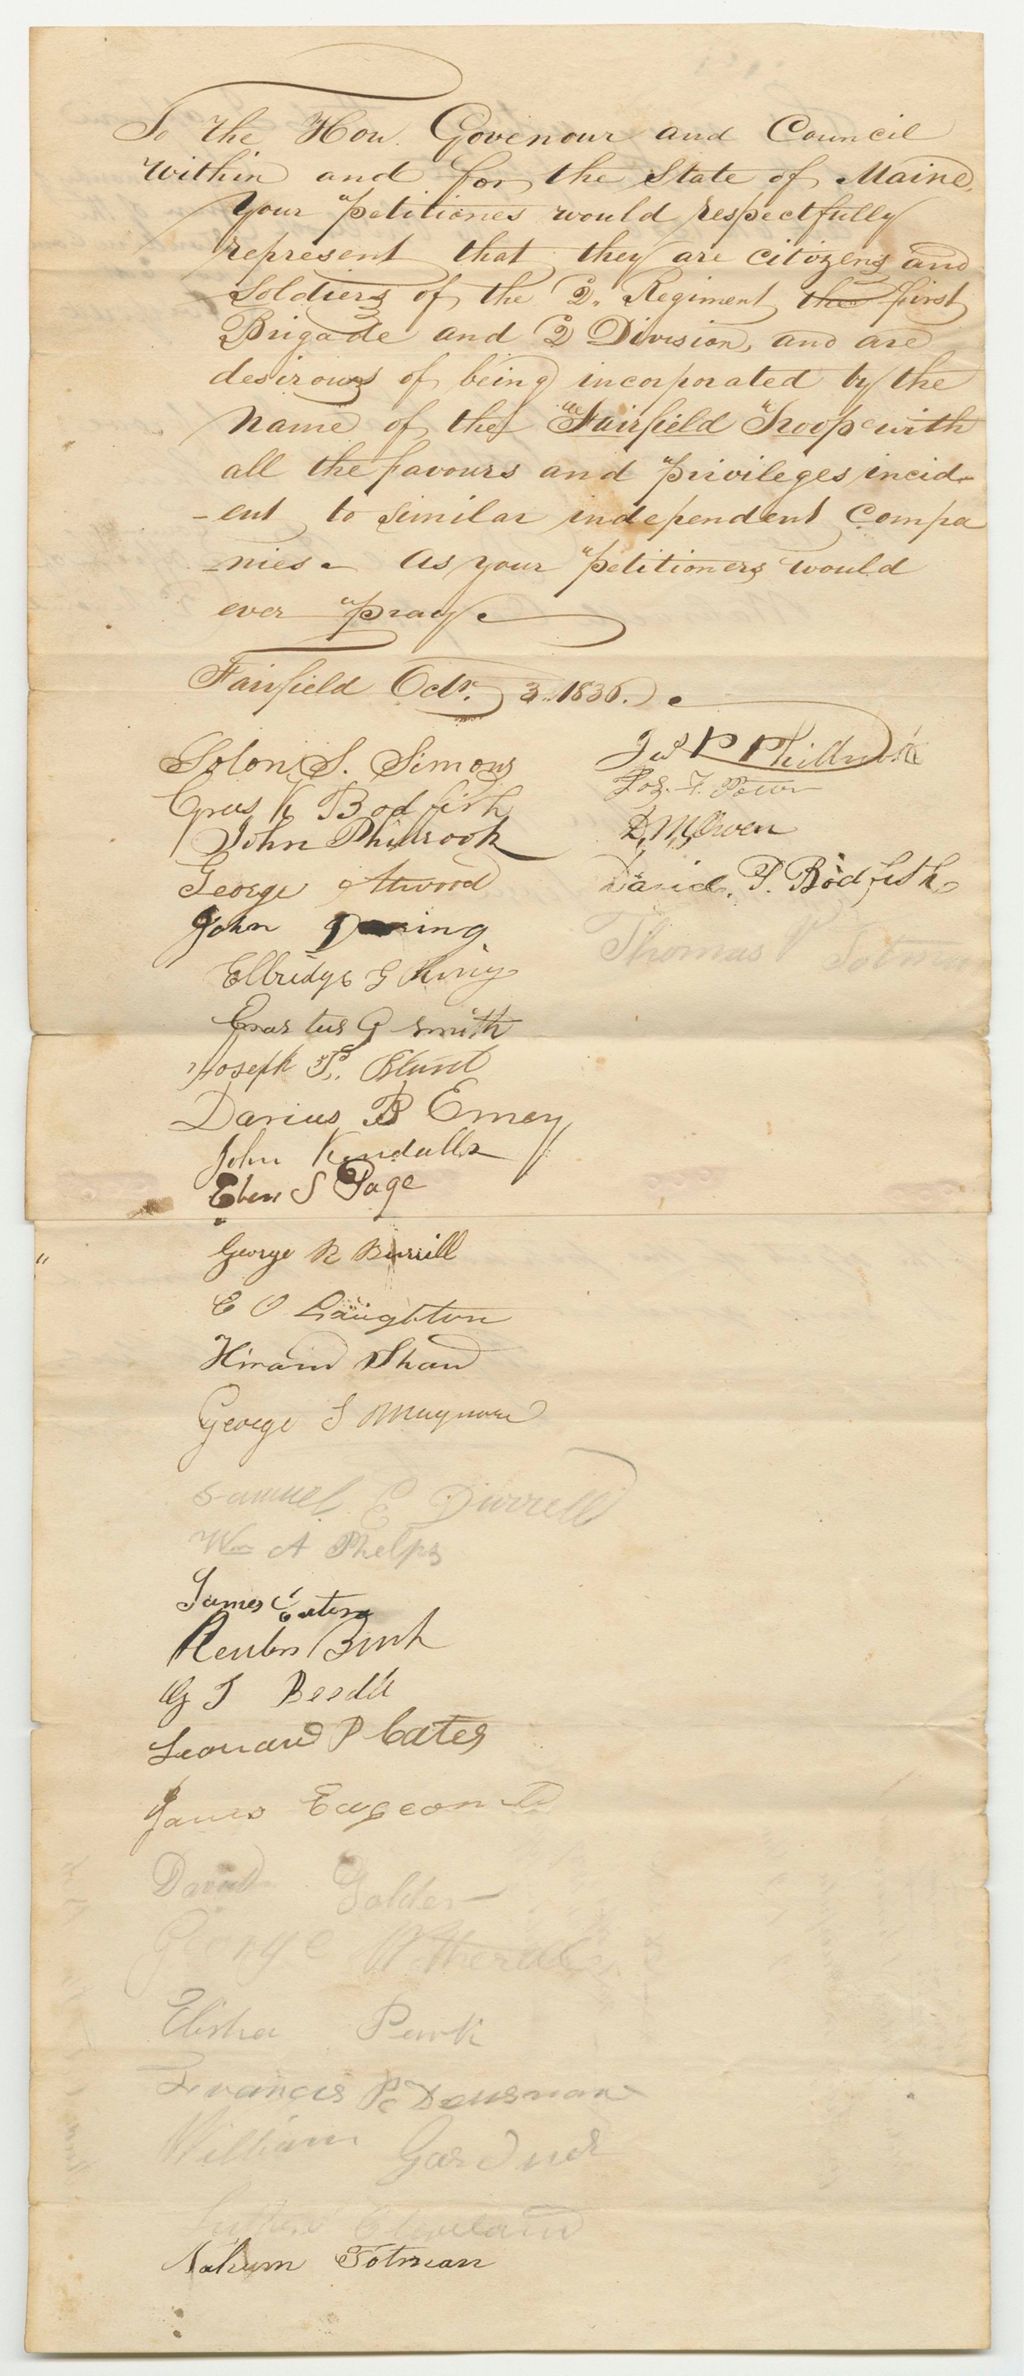 To the Hon. Govenour and Council
within and for the State of Maine.
Your petitiones would respectfully
represent that they are citizens and
Soldiers of the 2. Regiment the first
Brigade and 2 Division, and are
desirous of being incorporated by the
name of the Fairfield Troop with
all the favours and privileges incid-
-ent to similar independent Compa
-nies. As your petitioners would
ever pray.
Fairfield Octr. 3. 1836.
Solon S. Simons
Cyrus K Bodfish
John Philbrook
George Atwood
John
Elbridge G King
Erastus G Smith
Joseph Blunt
Darius B Emery
John Kendall
Eben S Page
George R Burrill
E O Laughton
Hiram Shaw
George S
Samuel E Durrell
Wm A Phelps
James
Reuben
G
Leonard P Cates
James
David Golder
George
Elisha
Francis
William Gardner
Luther Cleveland
Nahum Totman
D. M. Owen
David P. Bodfish
Thomas Totman